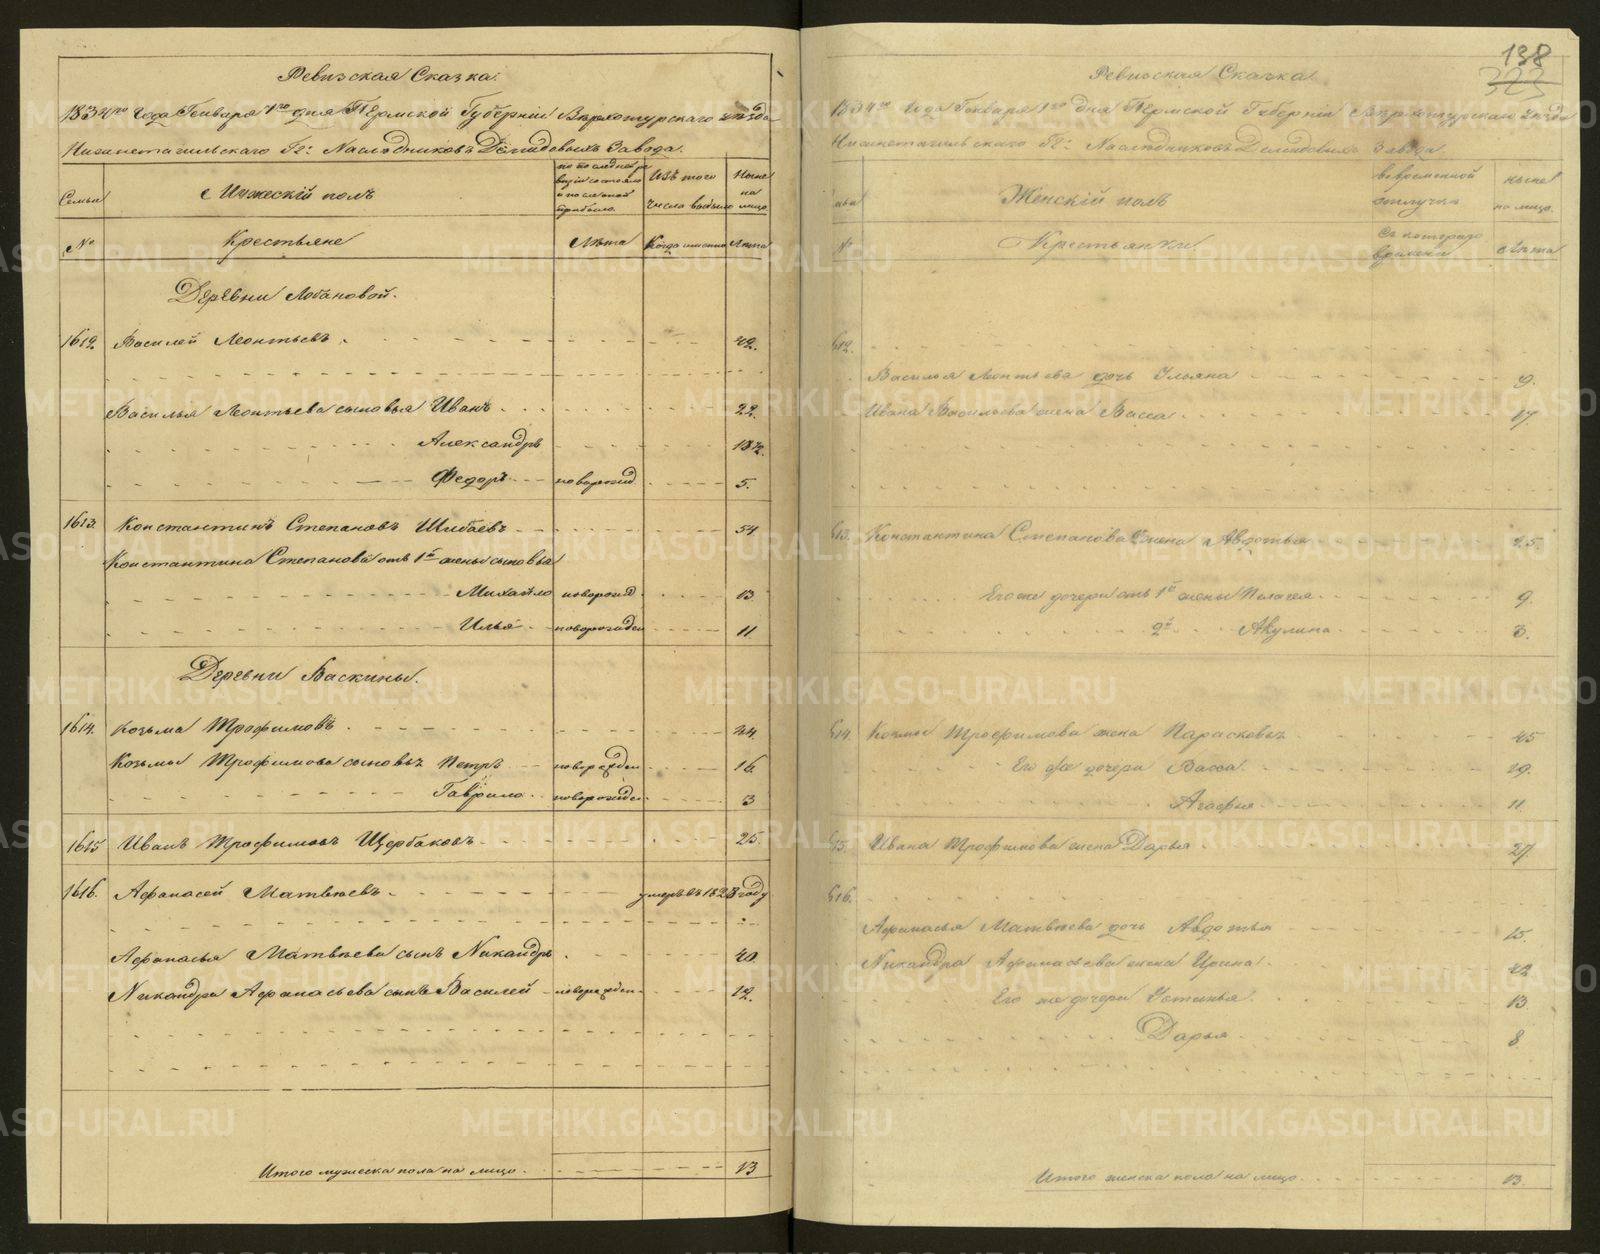 Ревизская Сказка.
1834го года Генваря 1го дня Пермской Губерніи Верхотурскаго уѣзда
Нижнетагильскаго Гг: Наслѣдниковъ Демидовыхъ Завода.
Семьи
Мужескій полъ
по последней ревизіи состояло и после оной прибыло.
Изъ того числа выбыло
Ныне на лицо.
№
Крестьяне
Лѣта
Когда именно
Лѣта
Деревни Лобановой.
1612. Василей Леонтьевъ 42.
Василья Леонтьева сыновья Иванъ 22.
Александръ 18½.
Федоръ новорожд. 5.
1613. Константинъ Степановъ Шибаевъ 54
Константина Степанова отъ 1й жены сыновья
Михайло новорожд. 13.
Илья новорожден 11
Деревни Баскины.
1614. Козьма Трофимовъ 44.
Козьмы Трофимова сыновья Петръ новорожден 16.
Гаврило новорожден 3
1615 Иванъ Трофимовъ Щербаковъ 25.
1616. Афанасей Матвѣевъ умеръ въ 1828 году
Афанасья Матвѣева сынъ Никандръ 40.
Никандра Афанасьева сынъ Василей новорожден 12.
Итого мужеска пола на лицо. 13
138
323
Ревизская Сказка.
1834го года Генваря 1го дня Пермской Губерніи Верхотурскаго уѣзда
Нижнетагильскаго Гг: Наслѣдниковъ Демидовыхъ Завода.
Женскій полъ
во временной отлучке
ныне на лицо.
№
Крестьянки
Съ котораго времени
лѣта
612.
Василья Леонтьева дочь Ульяна 9.
Ивана Васильева жена Васса 17.
613. Константина Степанова жена Авдотья 25.
Его же дочери отъ 1й жены Пелагея 9.
2й Акулина 3.
614. Козьмы Трофимова жена Парасковья 45
Его же дочери Васса 19.
Агафья 11
615. Ивана Трофимова жена Дарья 27.
616.
Афанасья Матвѣева дочь Авдотья 15.
Никандра Афанасьева жена Ирина 42
Его же дочери Устинья 13
Дарья 8
Итого женска пола на лицо 13.
METRIKI.GASO-URAL.RU